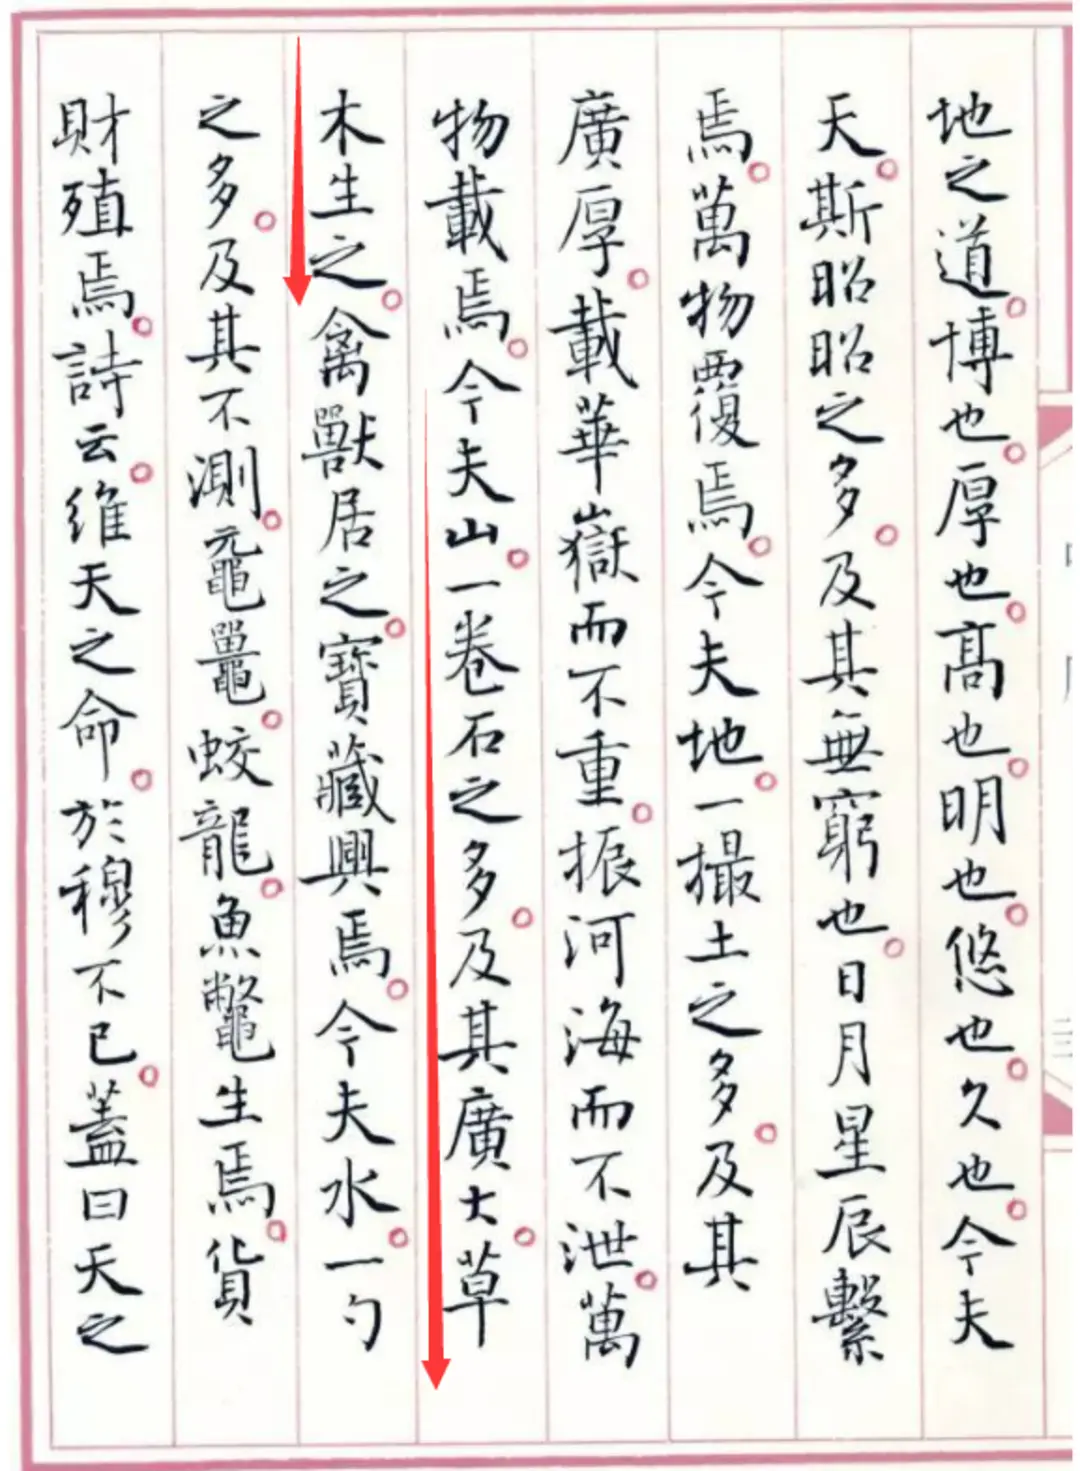 地之道。博也。厚也。高也。明也。悠也。久也。今夫
天。斯昭昭之多。及其無窮也。日月星辰繫
焉。萬物覆焉。今夫地。一撮土之多。及其
廣厚。載華嶽而不重。振河海而不泄。萬
物載焉。今夫山。一卷石之多。及其廣大。草
木生之。禽獸居之。寶藏興焉。今夫水。一勺
之多。及其不測。黿鼉。蛟龍。魚鼈生焉。貨
財殖焉。詩云。維天之命。於穆不已。蓋曰天之